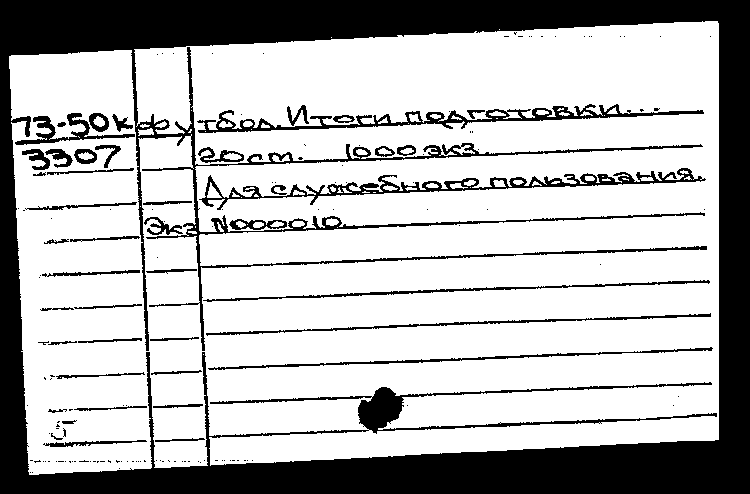 73-50к футбол. Итоги подготовки...
3307 20 cm. 1000 экз.
Для служебного пользования.
Экз N000010.
5